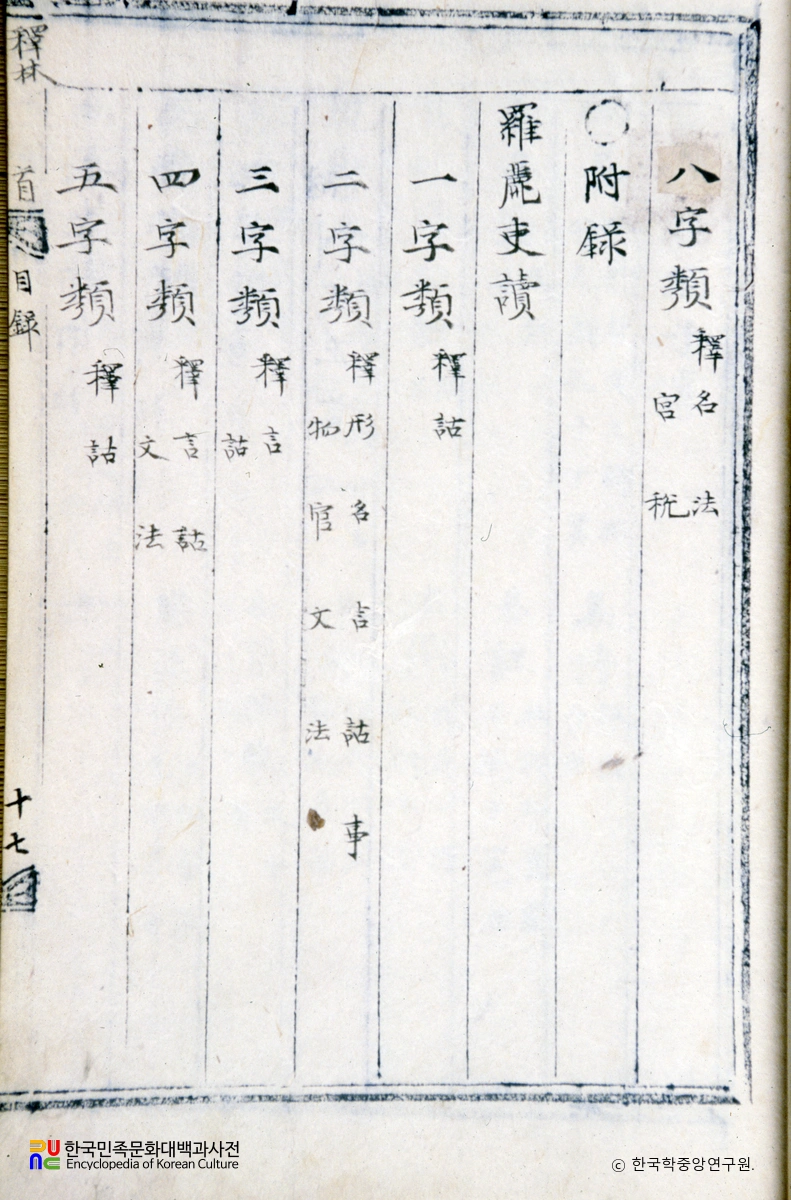 八字類 釋名法 宮稅
〇附録
羅麗吏讀
一字類 釋詁
二字類 釋形名言詁事 物官文法
三字類 釋言 詁
四字類 釋言詁 文法
五字類 釋詁
釋林 首 目録 十七
한국민족문화대백과사전
Encyclopedia of Korean Culture
ⓒ 한국학중앙연구원.